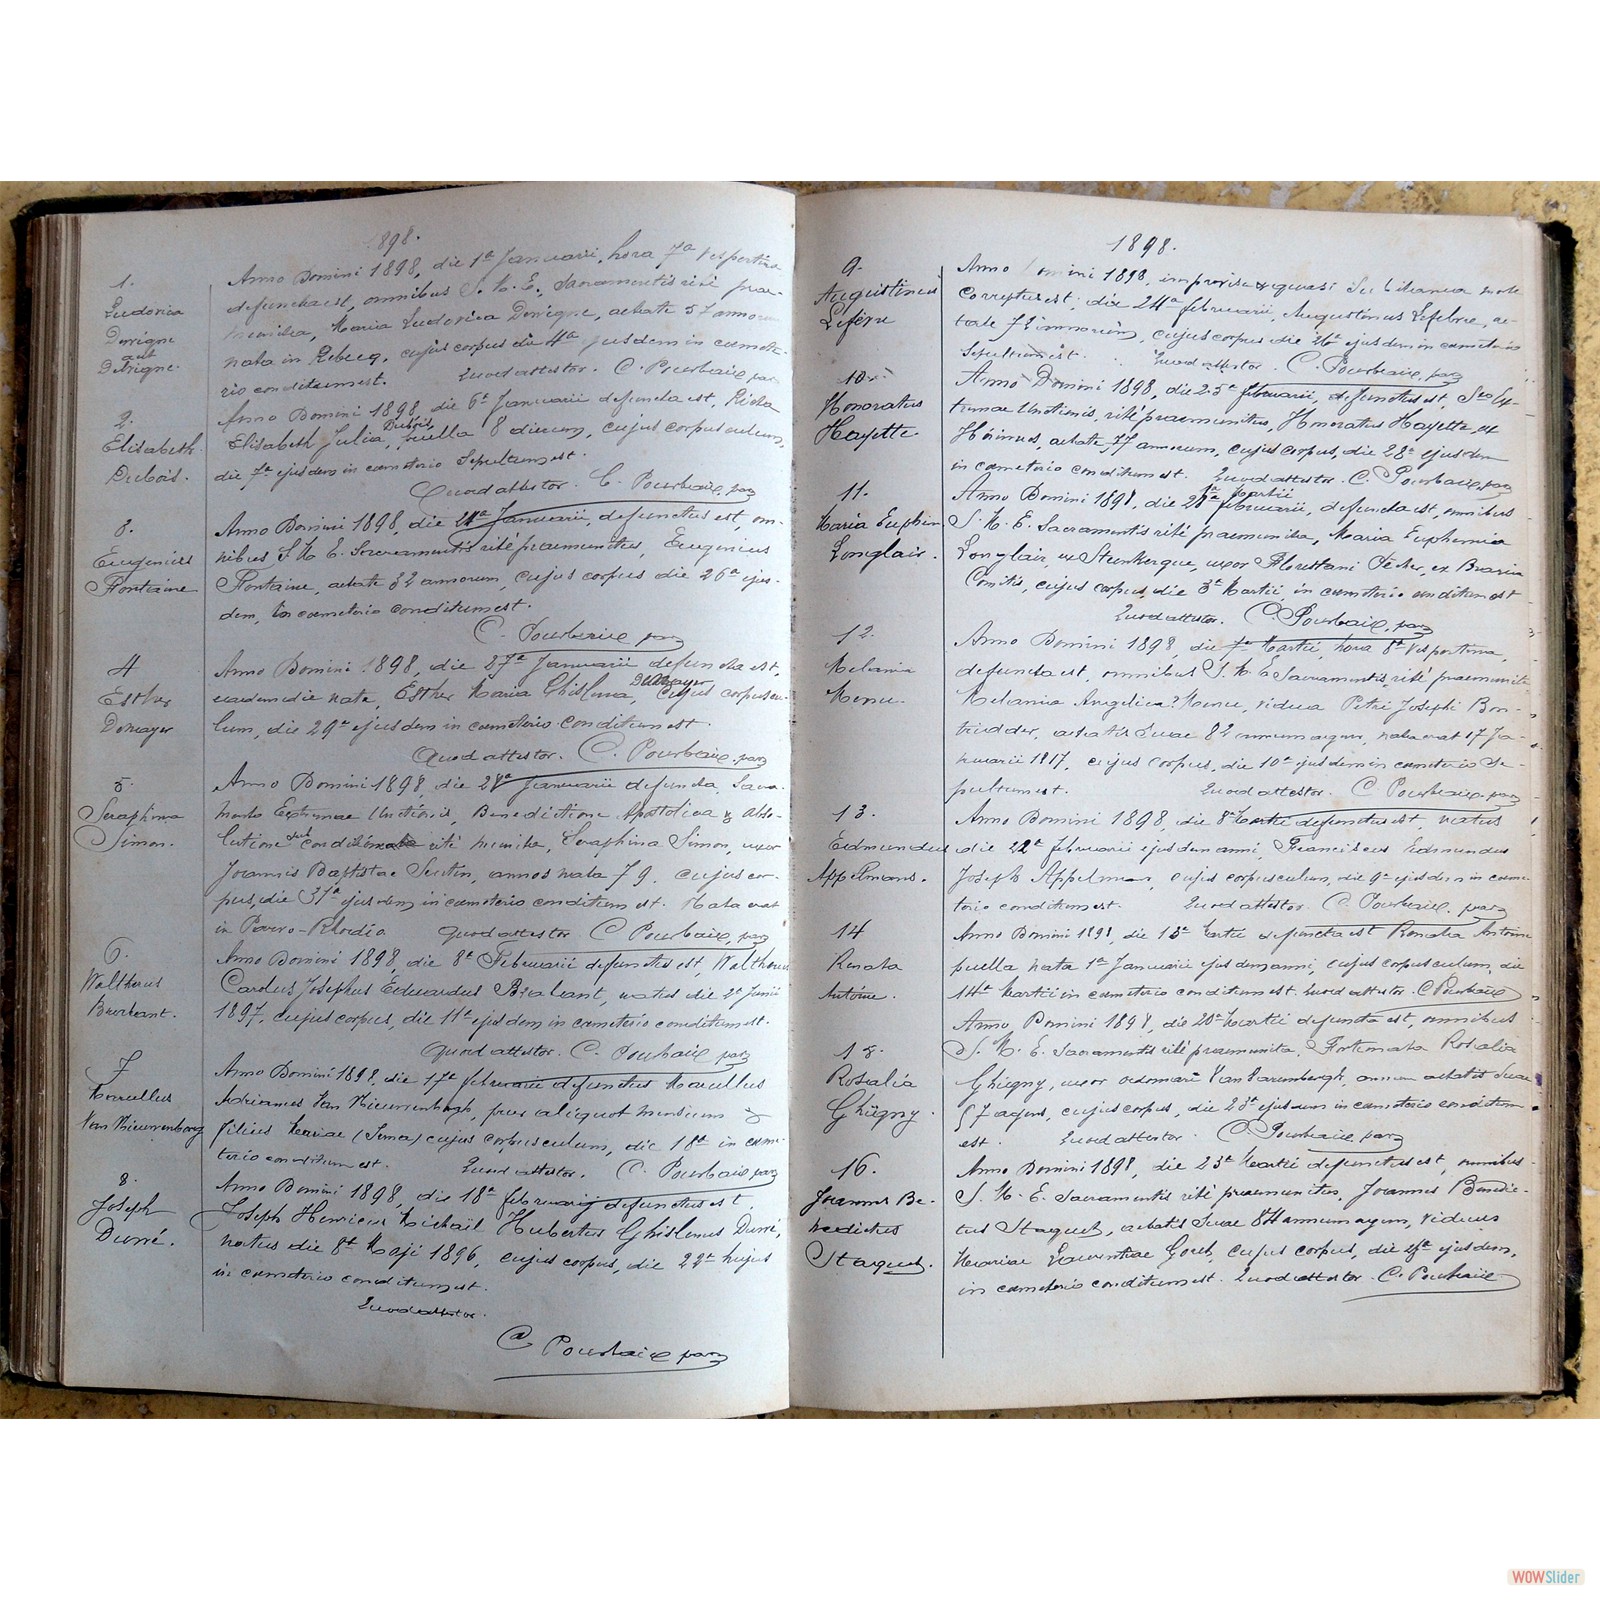 1898.
1.
Ludovica
Derrigne
aut
Detrigne.
Anno Domini 1898, die 1ª Januarii, hora 7ª Vespertina
defuncta est, omnibus S. M. E. Sacramentis rité prae-
munita, Maria Ludovica Derrigne, aetate 57 annorum
nata in Rebecq, cujus corpus die 4ª ejusdem in cæmete-
rio conditum est. Quod attestor. C. Pourbaix, par
2.
Elisabeth
Dubois.
Anno Domini 1898, die 6ª Januarii defuncta est,
Elisabeth Julia, Dubois, puella 8 dierum, cujus corpusculum,
die 7ª ejusdem in cæmeterio Sepultum est.
Quod attestor. C. Pourbaix, par
3.
Eugenius
Fontaine
Anno Domini 1898, die 24ª Januarii, defunctus est, om-
nibus S. M. E. Sacramentis rité praemunitus, Eugenius
Fontaine, aetate 32 annorum, cujus corpus die 26ª ejus-
dem, in cæmeterio conditum est.
C. Pourbaix par
4
Esther
Demayer
Anno Domini 1898, die 27ª Januarii defuncta est,
eadem die nata, Esther Maria Ghislena, Demayer cujus corpuscu-
lum, die 29ª ejusdem in cæmeterio conditum est.
Quod attestor. C. Pourbaix, par
5.
Seraphina
Simon.
Anno Domini 1898, die 28ª Januarii defuncta, Sacra-
mento Extremae Unctionis, Benedictione Apostolica & Abso-
lutione sub conditione rité munita, Seraphina Simon, uxor
Joannis Baptistae Sertin, annos nata 79. cujus cor-
pus, die 31ª ejusdem in cæmeterio conditum est. Nata erat
in Quod attestor C. Pourbaix, par
6.
Waltherus
Brabant.
Anno Domini 1898, die 8ª Februarii defunctus est, Waltherus
Carolus Josephus Eduardus Brabant, natus die 2ª Junii
1897, cujus corpus, die 11ª ejusdem in cæmeterio conditum est.
Quod attestor. C. Pourbaix par
7
Marcellus
Van Nieuwenborg
Anno Domini 1898, die 17ª februarii defunctus Marcellus
Adrianus Van Nieuwenborgh, puer aliquot mensium &
filius Mariae cujus corpusculum, die 18ª in cæme-
terio conditum est. Quod attestor. C. Pourbaix par
8.
Joseph
Durré.
Anno Domini 1898, die 18ª februarij defunctus est
Joseph Henricus Michaël Hubertus Ghislenus Durré,
natus die 8ª Maji 1896, cujus corpus, die 22ª hujus
in cæmeterio conditum est.
Quod attestor.
C. Pourbaix par
1898.
9.
Augustinus
Lefèvre
Anno Domini 1898, improvisa & quasi Subitanea morte
correptus est, die 24ª februarii, Augustinus Lefebvre, ae-
tate annorum, cujus corpus die 26ª ejusdem in cæmeterio
Sepultum est. Quod attestor C. Pourbaix, par
10.
Honoratus
Hayette.
Anno Domini 1898, die 25ª februarii, defunctus est, Sto Ex-
tremae Unctionis, rité praemunitus, Honoratus Hayette ex
Hoimus, aetate 77 annorum, cujus corpus, die 28ª ejusdem
in cæmeterio conditum est. Quod attestor C. Pourbaix, par
11.
Maria Euphem
Longlair.
Anno Domini 1898, die 2ª Martii februarii, defuncta est, omnibus
S. M. E. Sacramentis rité praemunita, Maria Euphemia
Longlair ex Steenkerque, uxor Florestani Pécher, ex Braina
Comitis, cujus corpus, die 3ª Martii, in cæmeterio conditum est
Quod attestor. C. Pourbaix, par
12.
Melania
Menu.
Anno Domini 1898, die 7ª Martii, hora 8ª Vespertina,
defuncta est, omnibus S. M. E. Sacramentis, rité praemunita
Melania Angelica Menu, vidua Petri Josephi Bon-
tridder, aetatis Suae 82 annum agens, nata erat 17 Ja-
nuarii 1817, cujus corpus, die 10ª ejusdem in cæmeterio Se-
pultum est. Quod attestor. C Pourbaix, par
13.
Edmundus
Appelmans.
Anno Domini 1898, die 8ª Martii defunctus est, natus
die 22ª februarii ejusdem anni, Franciscus Edmundus
Joseph Appelman, cujus corpusculum, die 9ª ejusdem in cæme-
terio conditum est. Quod attestor C. Pourbaix, par
14
Renata
Antoine.
Anno Domini 1898, die 13ª Martii defuncta est Renata Antoine
puella nata 1ª Januarii ejusdem anni, cujus corpusculum, die
14ª Martii in cæmeterio conditum est. Quod attestor. C Pourbaix
15.
Rosalia
Ghigny.
Anno Domini 1898, die 20ª Martii defuncta est, omnibus
S. M. E. Sacramentis rité praemunita, Fortunata Rosalia
Ghigny, uxor Vanvarembergh, annum aetatis Suae
57 agens, cujus corpus, die 23ª ejusdem in cæmeterio conditum
est. Quod attestor. C. Pourbaix par
16.
Joannes Be-
nedictus
Staquet.
Anno Domini 1898, die 23ª Martii defunctus est, omnibus
S. M. E. Sacramentis rité praemunitus, Joannes Benedic-
tus Staquet, aetatis Suae 84 annum agens, viduus
Mariae Laurentiae Goret, cujus corpus, die ejusdem,
in cæmeterio conditum est. Quod attestor. C. Pourbaix
WOWSlider